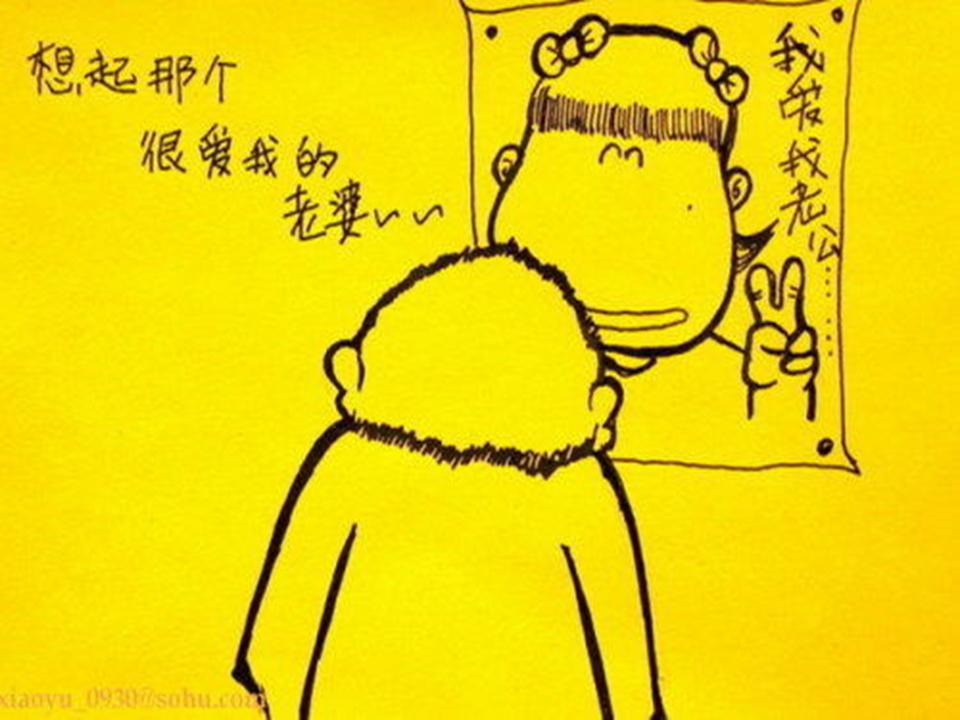 想起那个
很爱我的
老婆~~
我爱我老公……
xiaoyu_0930@sohu.com